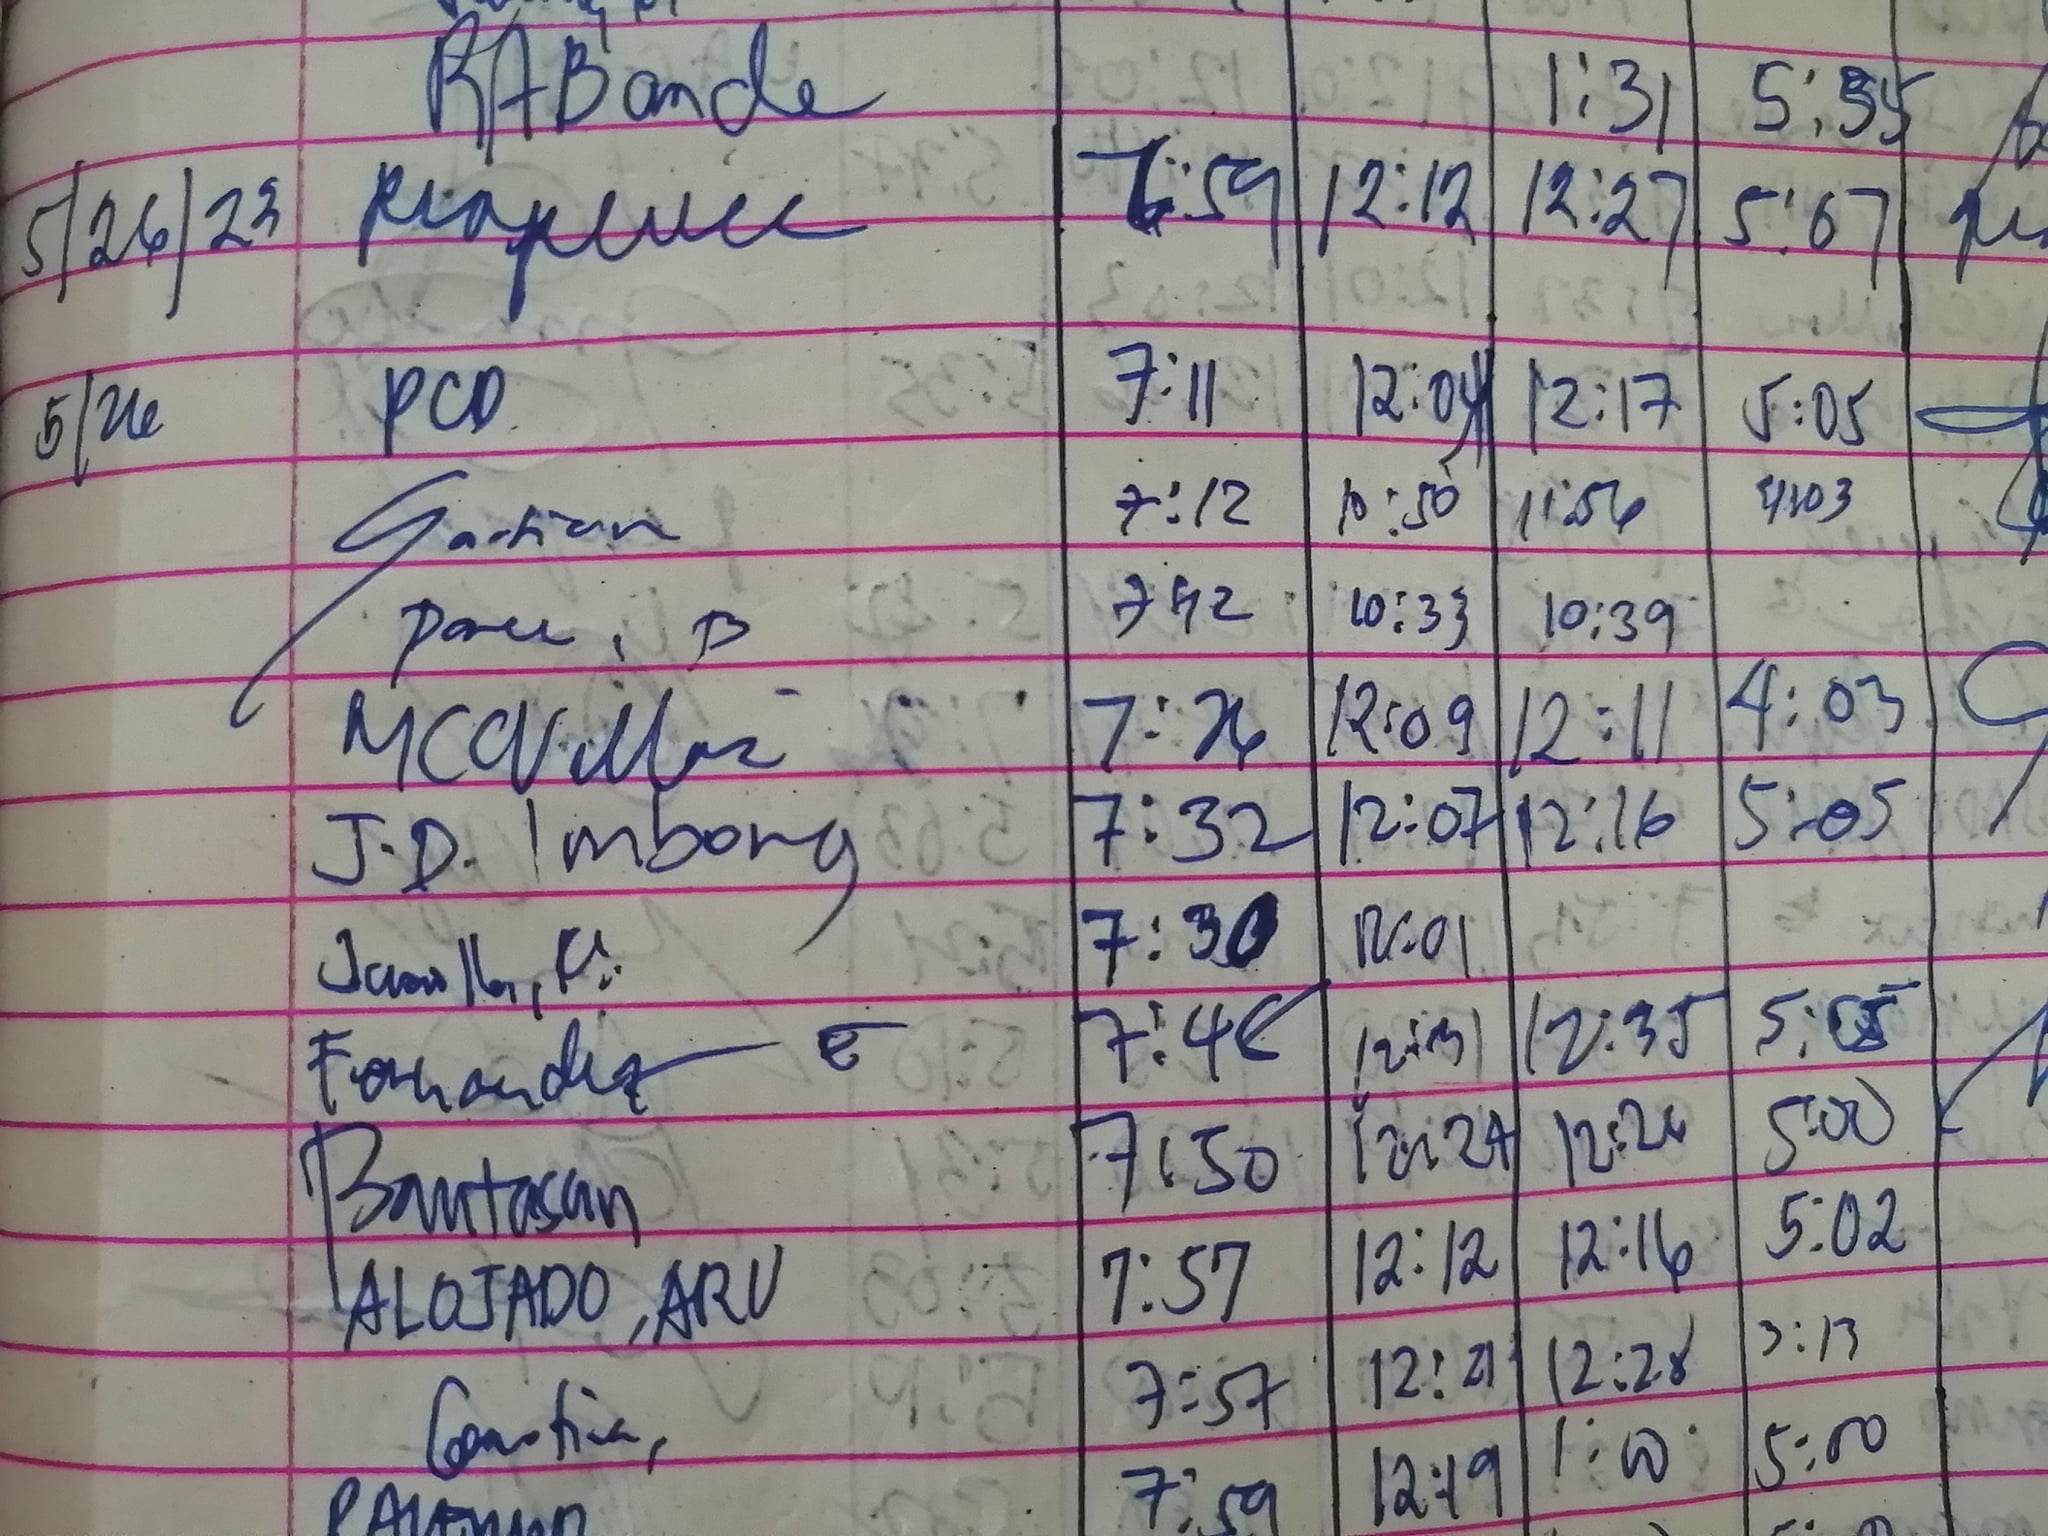 RABande 1:31 5:35
5/26/23 6:59 12:12 12:27 5:07
5/26 PCD 7:11 12:04 12:17 5:05
7:12 10:50 11:56 4:03
B 7:42 10:33 10:39
MCQVillar 7:26 12:09 12:11 4:03
J.D. Imbong 7:32 12:07 12:16 5:05
7:30 12:01
Fernandez E 7:48 12:31 12:35 5:05
Bantasan 7:50 12:24 12:26 5:00
ALOJADO, ARV 7:57 12:12 12:16 5:02
7:57 12:21 12:28 3:13
7:59 12:19 1:00 5:00